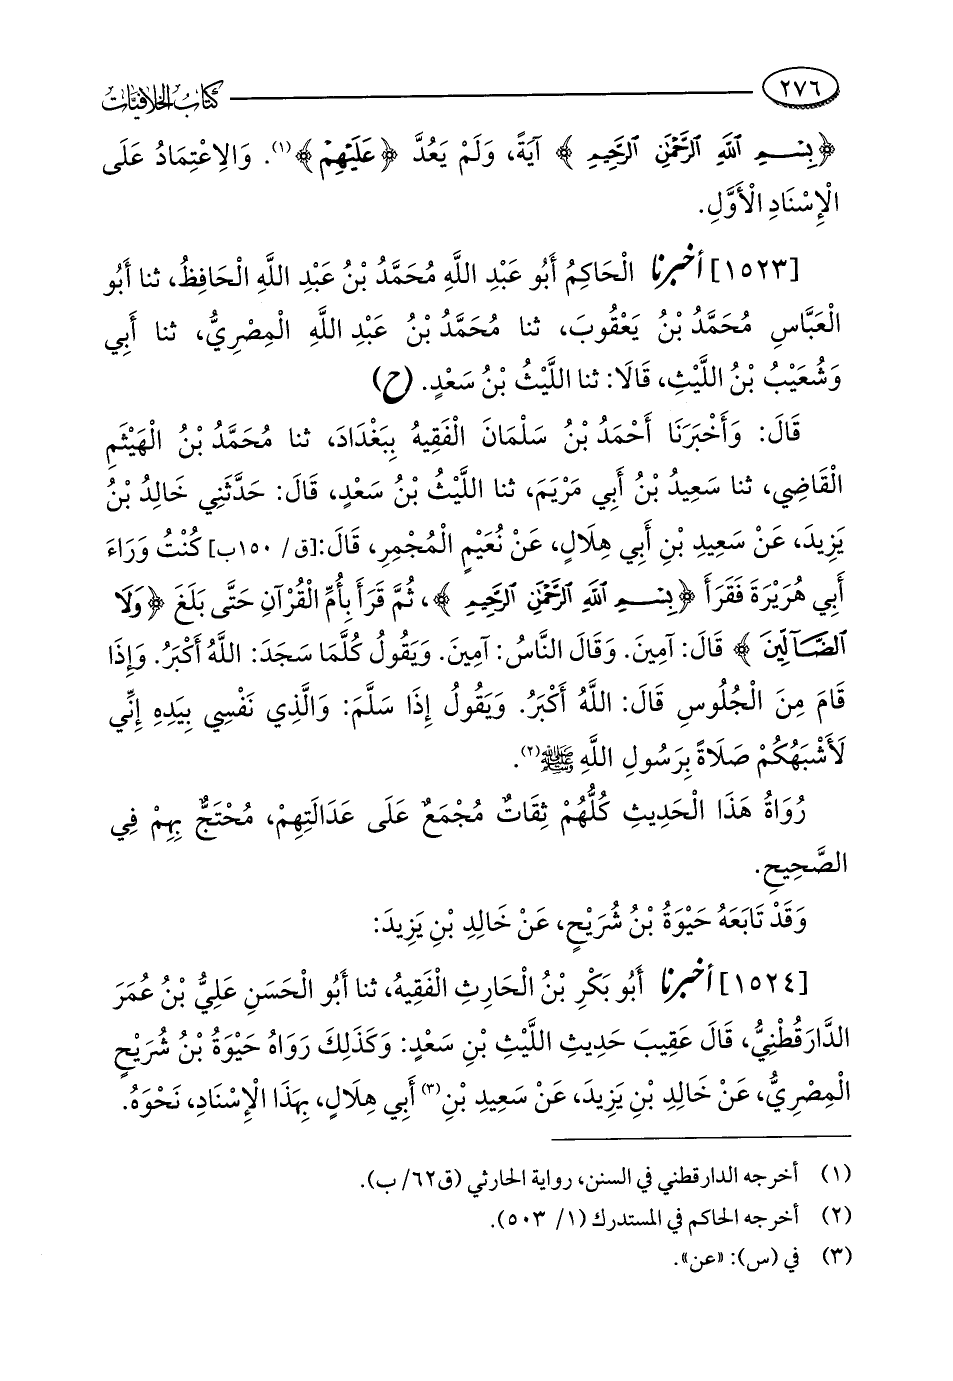 ٢٧٦ كتاب الخلافيات
﴿بِسْمِ ٱللَّهِ ٱلرَّحْمَٰنِ ٱلرَّحِيمِ﴾ آيَةً، وَلَمْ يَعُدَّ ﴿عَلَيْهِمْ﴾(١). وَالِاعْتِمَادُ عَلَى
الْإِسْنَادِ الْأَوَّلِ.
[١٥٢٣] أخبرنا الْحَاكِمُ أَبُو عَبْدِ اللَّهِ مُحَمَّدُ بْنُ عَبْدِ اللَّهِ الْحَافِظُ، ثنا أَبُو
الْعَبَّاسِ مُحَمَّدُ بْنُ يَعْقُوبَ، ثنا مُحَمَّدُ بْنُ عَبْدِ اللَّهِ الْمِصْرِيُّ، ثنا أَبِي
وَشُعَيْبُ بْنُ اللَّيْثِ، قَالَا: ثنا اللَّيْثُ بْنُ سَعْدٍ. (ح)
قَالَ: وَأَخْبَرَنَا أَحْمَدُ بْنُ سَلْمَانَ الْفَقِيهُ بِبَغْدَادَ، ثنا مُحَمَّدُ بْنُ الْهَيْثَمِ
الْقَاضِي، ثنا سَعِيدُ بْنُ أَبِي مَرْيَمَ، ثنا اللَّيْثُ بْنُ سَعْدٍ، قَالَ: حَدَّثَنِي خَالِدُ بْنُ
يَزِيدَ، عَنْ سَعِيدِ بْنِ أَبِي هِلَالٍ، عَنْ نُعَيْمٍ الْمُجْمِرِ، قَالَ:[ق/ ١٥٠ب] كُنْتُ وَرَاءَ
أَبِي هُرَيْرَةَ فَقَرَأَ ﴿بِسْمِ ٱللَّهِ ٱلرَّحْمَٰنِ ٱلرَّحِيمِ﴾، ثُمَّ قَرَأَ بِأُمِّ الْقُرْآنِ حَتَّى بَلَغَ ﴿وَلَا
ٱلضَّآلِّينَ﴾ قَالَ: آمِينَ. وَقَالَ النَّاسُ: آمِينَ. وَيَقُولُ كُلَّمَا سَجَدَ: اللَّهُ أَكْبَرُ. وَإِذَا
قَامَ مِنَ الْجُلُوسِ قَالَ: اللَّهُ أَكْبَرُ. وَيَقُولُ إِذَا سَلَّمَ: وَالَّذِي نَفْسِي بِيَدِهِ إِنِّي
لَأَشْبَهُكُمْ صَلَاةً بِرَسُولِ اللَّهِ ﷺ(٢).
رُوَاةُ هَذَا الْحَدِيثِ كُلُّهُمْ ثِقَاتٌ مُجْمَعٌ عَلَى عَدَالَتِهِمْ، مُحْتَجٌّ بِهِمْ فِي
الصَّحِيحِ.
وَقَدْ تَابَعَهُ حَيْوَةُ بْنُ شُرَيْحٍ، عَنْ خَالِدِ بْنِ يَزِيدَ:
[١٥٢٤] أخبرنا أَبُو بَكْرِ بْنُ الْحَارِثِ الْفَقِيهُ، ثنا أَبُو الْحَسَنِ عَلِيُّ بْنُ عُمَرَ
الدَّارَقُطْنِيُّ، قَالَ عَقِيبَ حَدِيثِ اللَّيْثِ بْنِ سَعْدٍ: وَكَذَلِكَ رَوَاهُ حَيْوَةُ بْنُ شُرَيْحٍ
الْمِصْرِيُّ، عَنْ خَالِدِ بْنِ يَزِيدَ، عَنْ سَعِيدِ بْنِ(٣) أَبِي هِلَالٍ، بِهَذَا الْإِسْنَادِ، نَحْوَهُ.
(١) أخرجه الدارقطني في السنن، رواية الحارثي (ق٦٢/ ب).
(٢) أخرجه الحاكم في المستدرك (١/ ٥٠٣).
(٣) في (س): «عن».